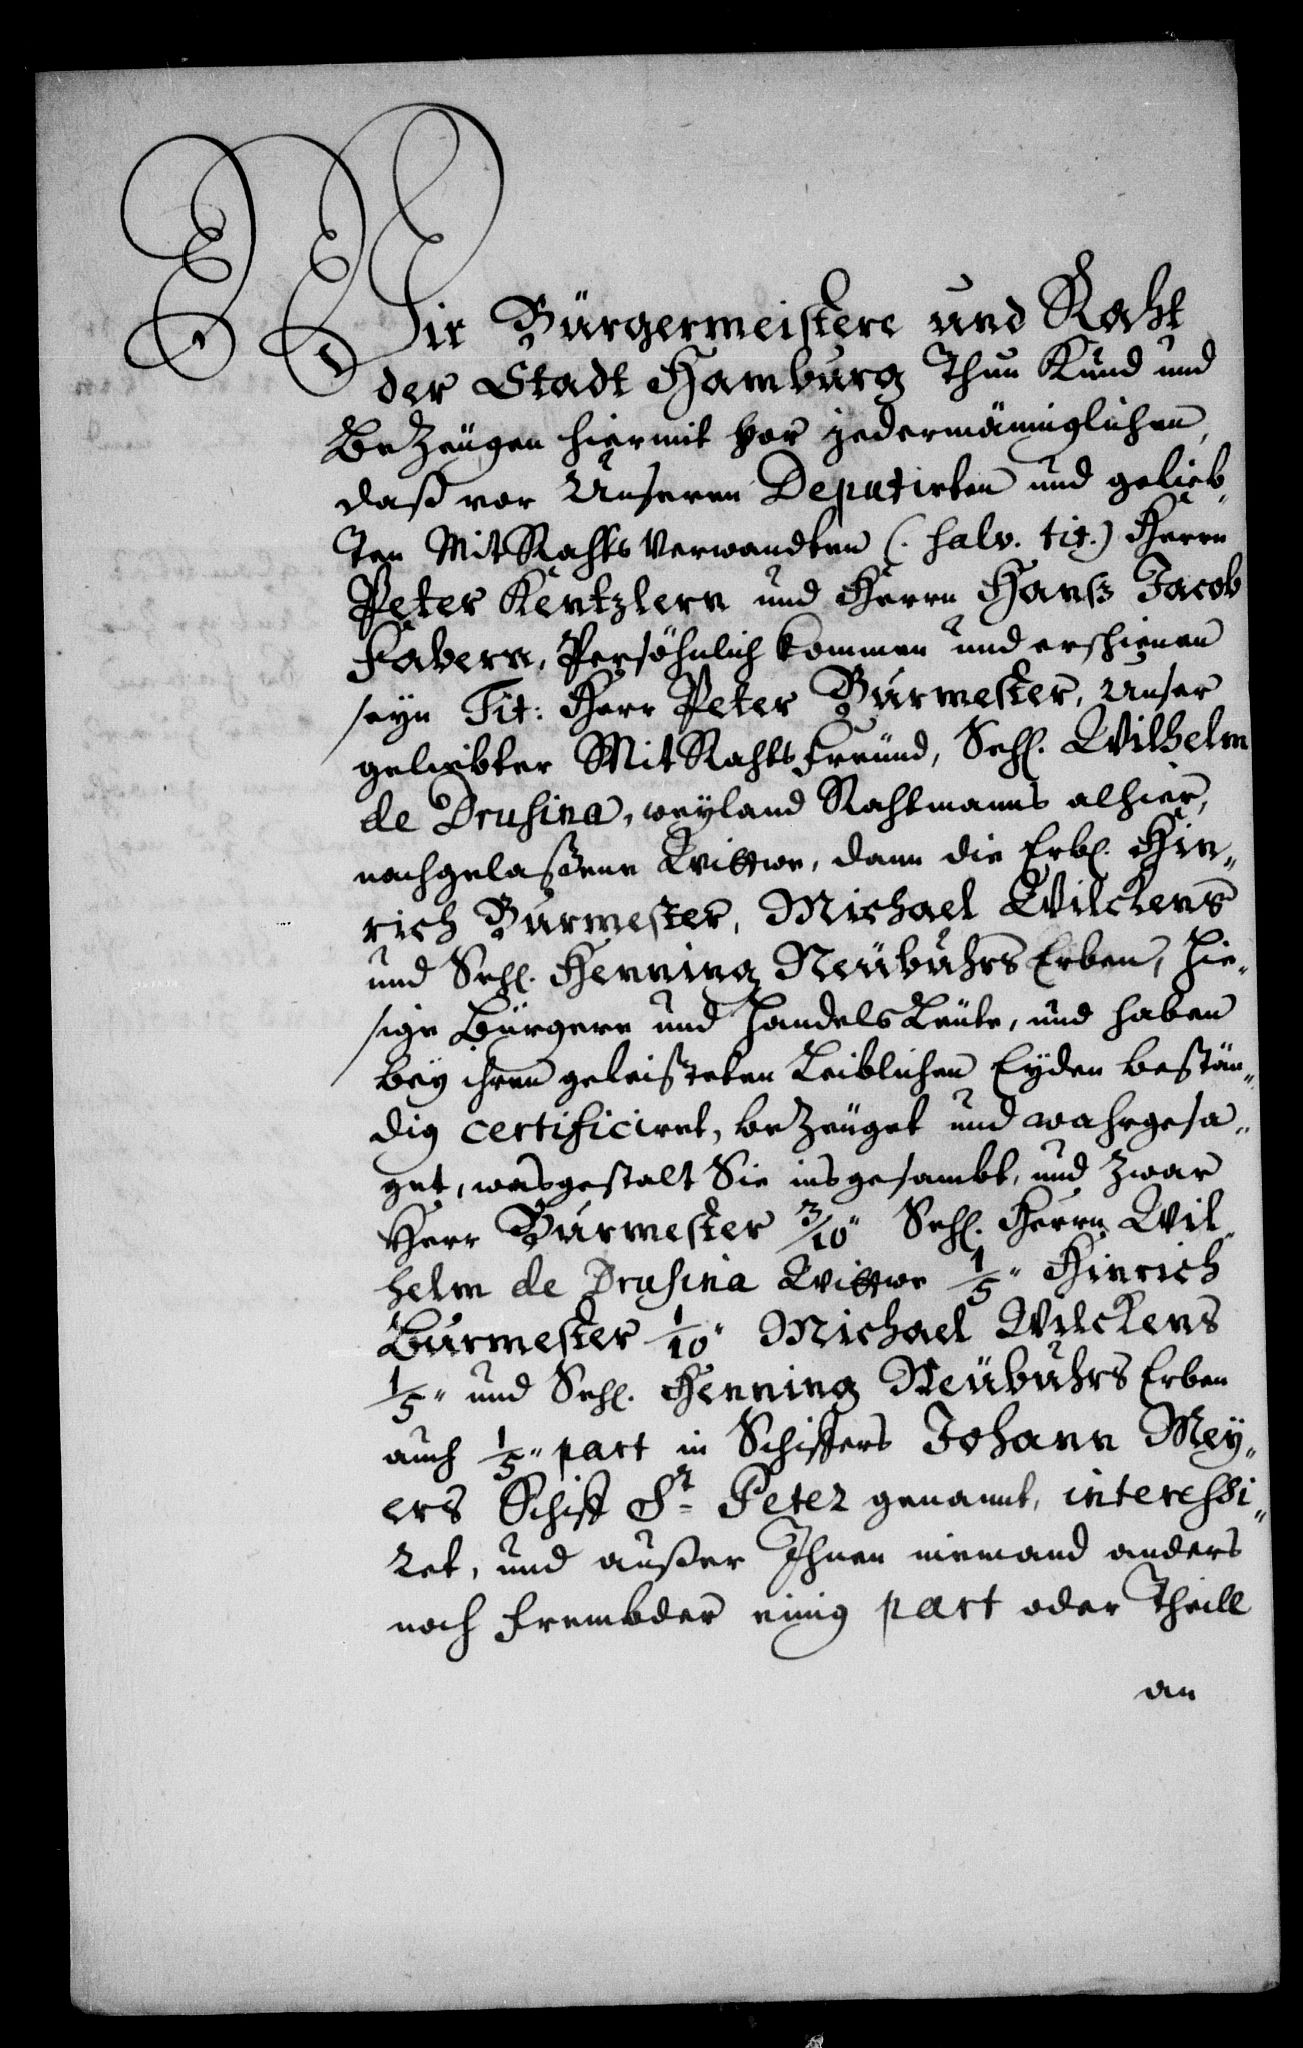 Wir Bürgermeistere und Raht
der Stadt Hamburg Thun Kund und
Bezeugen hiermit vor jedermänniglichen,
daß vor Unseren Deputirten und gelieb„
ten MitRahts Verwandten (: salv. tit.) Herrn
Peter Kentzlern und Herrn Hanß Jacob
Fabern, Persöhnlich kommen und erschienen
seyn Tit: Herr Peter Burmester, Unser
geliebter MitRahtsfreund, Sehl. Wilhelm
de Drusina, weyland Rahtmanns alhier,
nachgelaßene Wittwe, dann die Erb. Hin„
rich Burmester, Michael Wilckens
und Sehl. Henning Neübuhrs Erben, hie„
sige Bürgere und Handels Leute, und haben
bey ihren geleisteten Leiblichen Eyden bestän„
dig certificiret, bezeuget und wahrgesa„
get, wasgestalt Sie insgesambt, und zwar
Herr Burmester 3/10„ Sehl. Herrn Wil„
helm de Drusina Wittwe 1/5„ Hinrich
Burmester 1/10„ Michael Wilckens
1/5„ und Sehl. Henning Neübuhrs Erben
auch 1/5„ part in Schiffers Johann Mey„
ers Schiff St Peter genannt, interessi„
ret, und außer Ihnen niemand anders
noch frembder einig part oder Theill
an